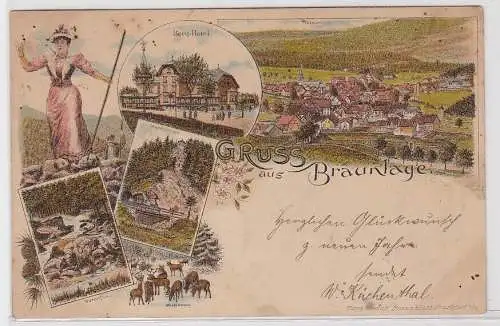 Berg-Hotel
GRUSS
aus
Braunlage.
Herzlichen Glückwunsch
z neuen Jahre
sendet
W. Küchenthal.